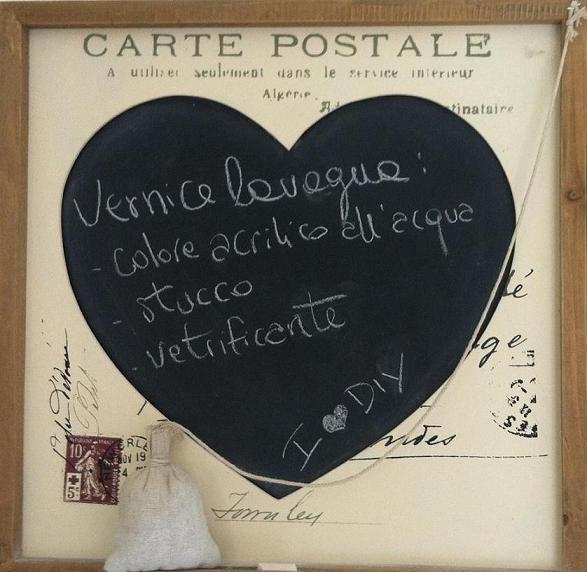 CARTE POSTALE
A utiliser seulement dans le service interieur
Algérie.
Ad tinataire
Vernice lavagna:
- colore acrilico all'acqua
- stucco
- vetrificante
I ♥ DIY
té
ge
ndes
10c
+ 5c
NOV 19
Townley